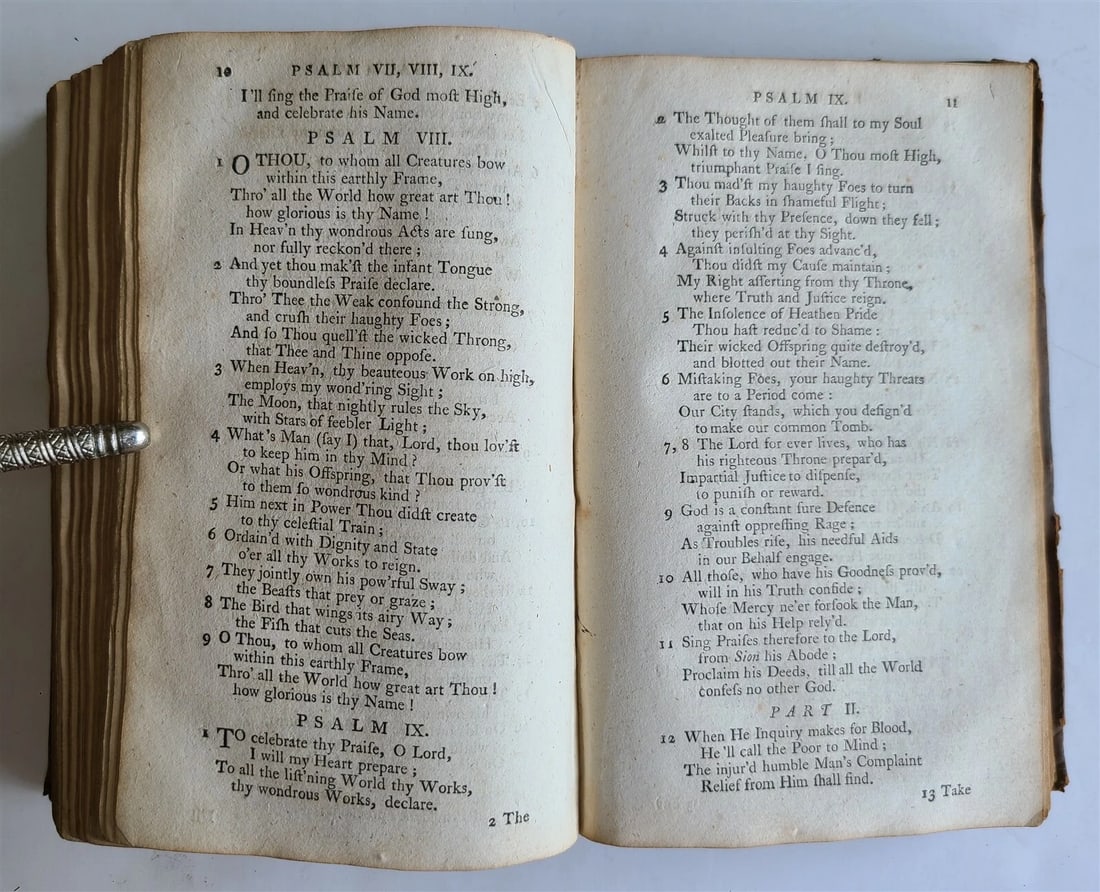 10 PSALM VII, VIII, IX.
I'll ſing the Praiſe of God moſt High,
and celebrate his Name.
PSALM VIII.
1 O THOU, to whom all Creatures bow
within this earthly Frame,
Thro' all the World how great art Thou!
how glorious is thy Name!
In Heav'n thy wondrous Acts are ſung,
nor fully reckon'd there;
2 And yet thou mak'ſt the infant Tongue
thy boundleſs Praiſe declare.
Thro' Thee the Weak confound the Strong,
and cruſh their haughty Foes;
And ſo Thou quell'ſt the wicked Throng,
that Thee and Thine oppoſe.
3 When Heav'n, thy beauteous Work on high,
employs my wond'ring Sight;
The Moon, that nightly rules the Sky,
with Stars of feebler Light;
4 What's Man (ſay I) that, Lord, thou lov'ſt
to keep him in thy Mind?
Or what his Offſpring, that Thou prov'ſt
to them ſo wondrous kind?
5 Him next in Power Thou didſt create
to thy celeſtial Train;
6 Ordain'd with Dignity and State
o'er all thy Works to reign.
7 They jointly own his pow'rful Sway;
the Beaſts that prey or graze;
8 The Bird that wings its airy Way;
the Fiſh that cuts the Seas.
9 O Thou, to whom all Creatures bow
within this earthly Frame,
Thro' all the World how great art Thou!
how glorious is thy Name!
PSALM IX.
1 TO celebrate thy Praiſe, O Lord,
I will my Heart prepare;
To all the liſt'ning World thy Works,
thy wondrous Works, declare.
2 The
PSALM IX. 11
2 The Thought of them ſhall to my Soul
exalted Pleaſure bring;
Whilſt to thy Name, O Thou moſt High,
triumphant Praiſe I ſing.
3 Thou mad'ſt my haughty Foes to turn
their Backs in ſhameful Flight;
Struck with thy Preſence, down they fell;
they periſh'd at thy Sight.
4 Againſt inſulting Foes advanc'd,
Thou didſt my Cauſe maintain;
My Right aſſerting from thy Throne,
where Truth and Juſtice reign.
5 The Inſolence of Heathen Pride
Thou haſt reduc'd to Shame:
Their wicked Offſpring quite deſtroy'd,
and blotted out their Name.
6 Miſtaking Foes, your haughty Threats
are to a Period come:
Our City ſtands, which you deſign'd
to make our common Tomb.
7, 8 The Lord for ever lives, who has
his righteous Throne prepar'd,
Impartial Juſtice to diſpenſe,
to puniſh or reward.
9 God is a conſtant ſure Defence
againſt oppreſſing Rage;
As Troubles riſe, his needful Aids
in our Behalf engage.
10 All thoſe, who have his Goodneſs prov'd,
will in his Truth confide;
Whoſe Mercy ne'er forſook the Man,
that on his Help rely'd.
11 Sing Praiſes therefore to the Lord,
from Sion his Abode;
Proclaim his Deeds, till all the World
confeſs no other God.
PART II.
12 When He Inquiry makes for Blood,
He'll call the Poor to Mind;
The injur'd humble Man's Complaint
Relief from Him ſhall find.
13 Take